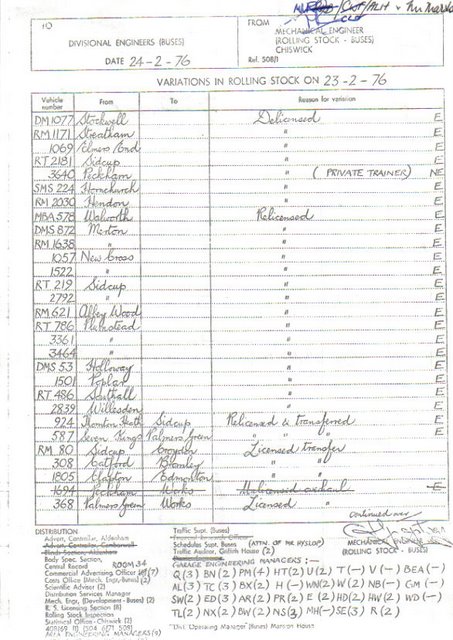 TO
DIVISIONAL ENGINEERS (BUSES)
DATE 24-2-76
FROM
MECHANICAL ENGINEER
(ROLLING STOCK - BUSES)
CHISWICK
Ref. 508/1
VARIATIONS IN ROLLING STOCK ON 23-2-76
Vehicle number From To Reason for variation
DM 1077 Stockwell Delicensed E
RM 1171 Streatham " E
1069 Elmers End " E
RT 2181 Sidcup " E
3640 Peckham " (PRIVATE TRAINER) NE
SMS 224 Hornchurch " E
RM 2030 Hendon " E
MBA 578 Walworth Relicensed E
DMS 872 Merton " E
RM 1638 " " E
1057 New Cross " E
1522 " " E
RT 219 Sidcup " E
2792 " " E
RM 621 Abbey Wood " E
RT 786 Plumstead " E
3361 " " E
3464 " " E
DMS 53 Holloway " E
1501 Poplar " E
RT 486 Southall " E
2839 Willesden " E
924 Thornton Heath Sidcup Relicensed & transferred E
587 Seven Kings Palmers Green " " " E
RM 80 Sidcup Croydon Licensed transfer
308 Catford Bromley "
1805 Clapton Edmonton "
1694 Peckham Works Delicensed overhaul E
368 Palmers Green Works Licensed "
continued over
DISTRIBUTION
Advert. Controller, Aldenham
Advert. Controller, Camberwell
Body Spec. Section,
Central Record ROOM 34
Commercial Advertising Officer (7)
Costs Office (Mech. Engr-Buses) (2)
Scientific Adviser (2)
Distribution Services Manager
Mech. Engr. (Development - Buses) (2)
R. S. Licensing Section (8)
Rolling Stock Inspection
Central Office - Chiswick (2)
MEA ENGINEERING MANAGERS (9)
Traffic Supt. (Buses)
Schedules Supt. Buses (ATTN. OF MR HYSLOP)
Traffic Auditor, Griffith House (2)
GARAGE ENGINEERING MANAGERS :-
Q (3) BN (2) PM (4) HT (2) U (2) T (-) V (-) BEA (-)
AL (3) TC (3) BX (2) H (-) WN (2) W (2) NB (-) GM (-)
SW (2) ED (3) AR (2) PR (2) E (2) HD (2) HW (2) WD (-)
TL (2) NX (2) BW (2) NS (3) MH (-) SE (3) R (2)
"Dist. Operating Manager" (Buses) Manson House
MECHANICAL ENGINEER
(ROLLING STOCK - BUSES)